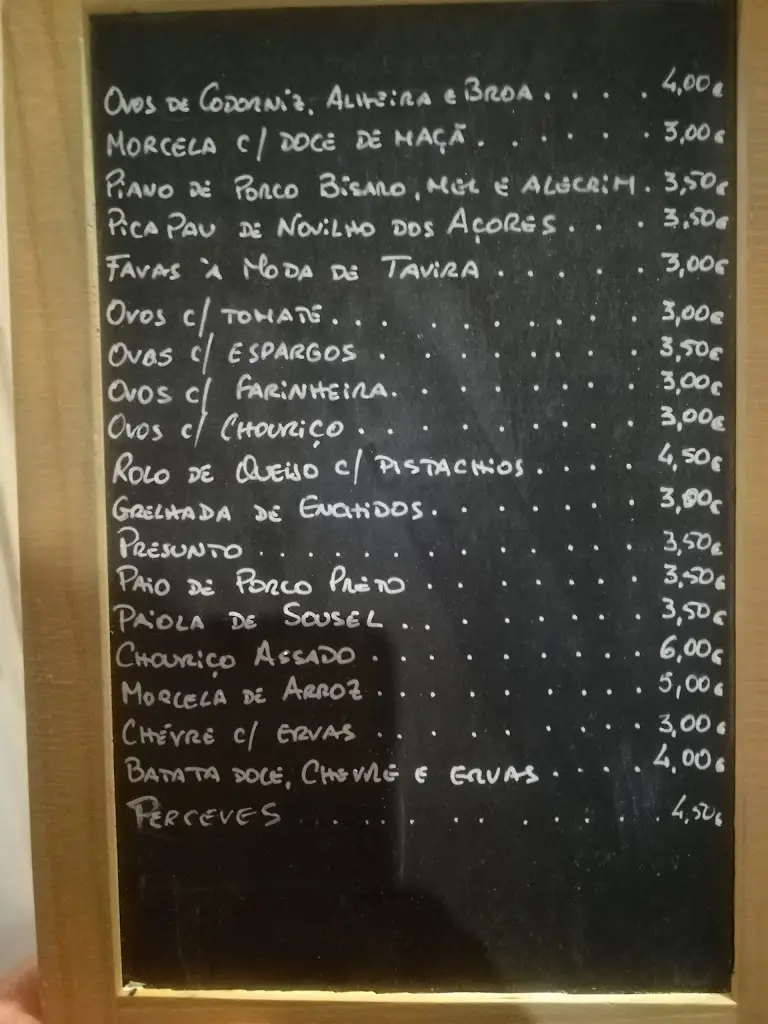 OVOS DE CODORNIZ, ALHEIRA E BROA . . . . 4,00€
MORCELA C/ DOCE DE MAÇÃ . . . . . 3,00€
PIANO DE PORCO BÍSARO, MEL E ALECRIM . 3,50€
PICA PAU DE NOVILHO DOS AÇORES . . . 3,50€
FAVAS À MODA DE TAVIRA . . . . . 3,00€
OVOS C/ TOMATE . . . . . . . . . 3,00€
OVOS C/ ESPARGOS . . . . . . . 3,50€
OVOS C/ FARINHEIRA . . . . . . . 3,00€
OVOS C/ CHOURIÇO . . . . . . . . 3,00€
ROLO DE QUEIJO C/ PISTACHIOS . . . . 4,50€
GRELHADA DE ENCHIDOS . . . . . . 3,00€
PRESUNTO . . . . . . . . . . . 3,50€
PAIO DE PORCO PRETO . . . . . . 3,50€
PAIOLA DE SOUSEL . . . . . . . . 3,50€
CHOURIÇO ASSADO . . . . . . . . . 6,00€
MORCELA DE ARROZ . . . . . . . . . 5,00€
CHÉVRE C/ ERVAS . . . . . . . . 3,00€
BATATA DOCE, CHEVRE E ERVAS . . . . 4,00€
PERCEVES . . . . . . . . . . . 4,50€